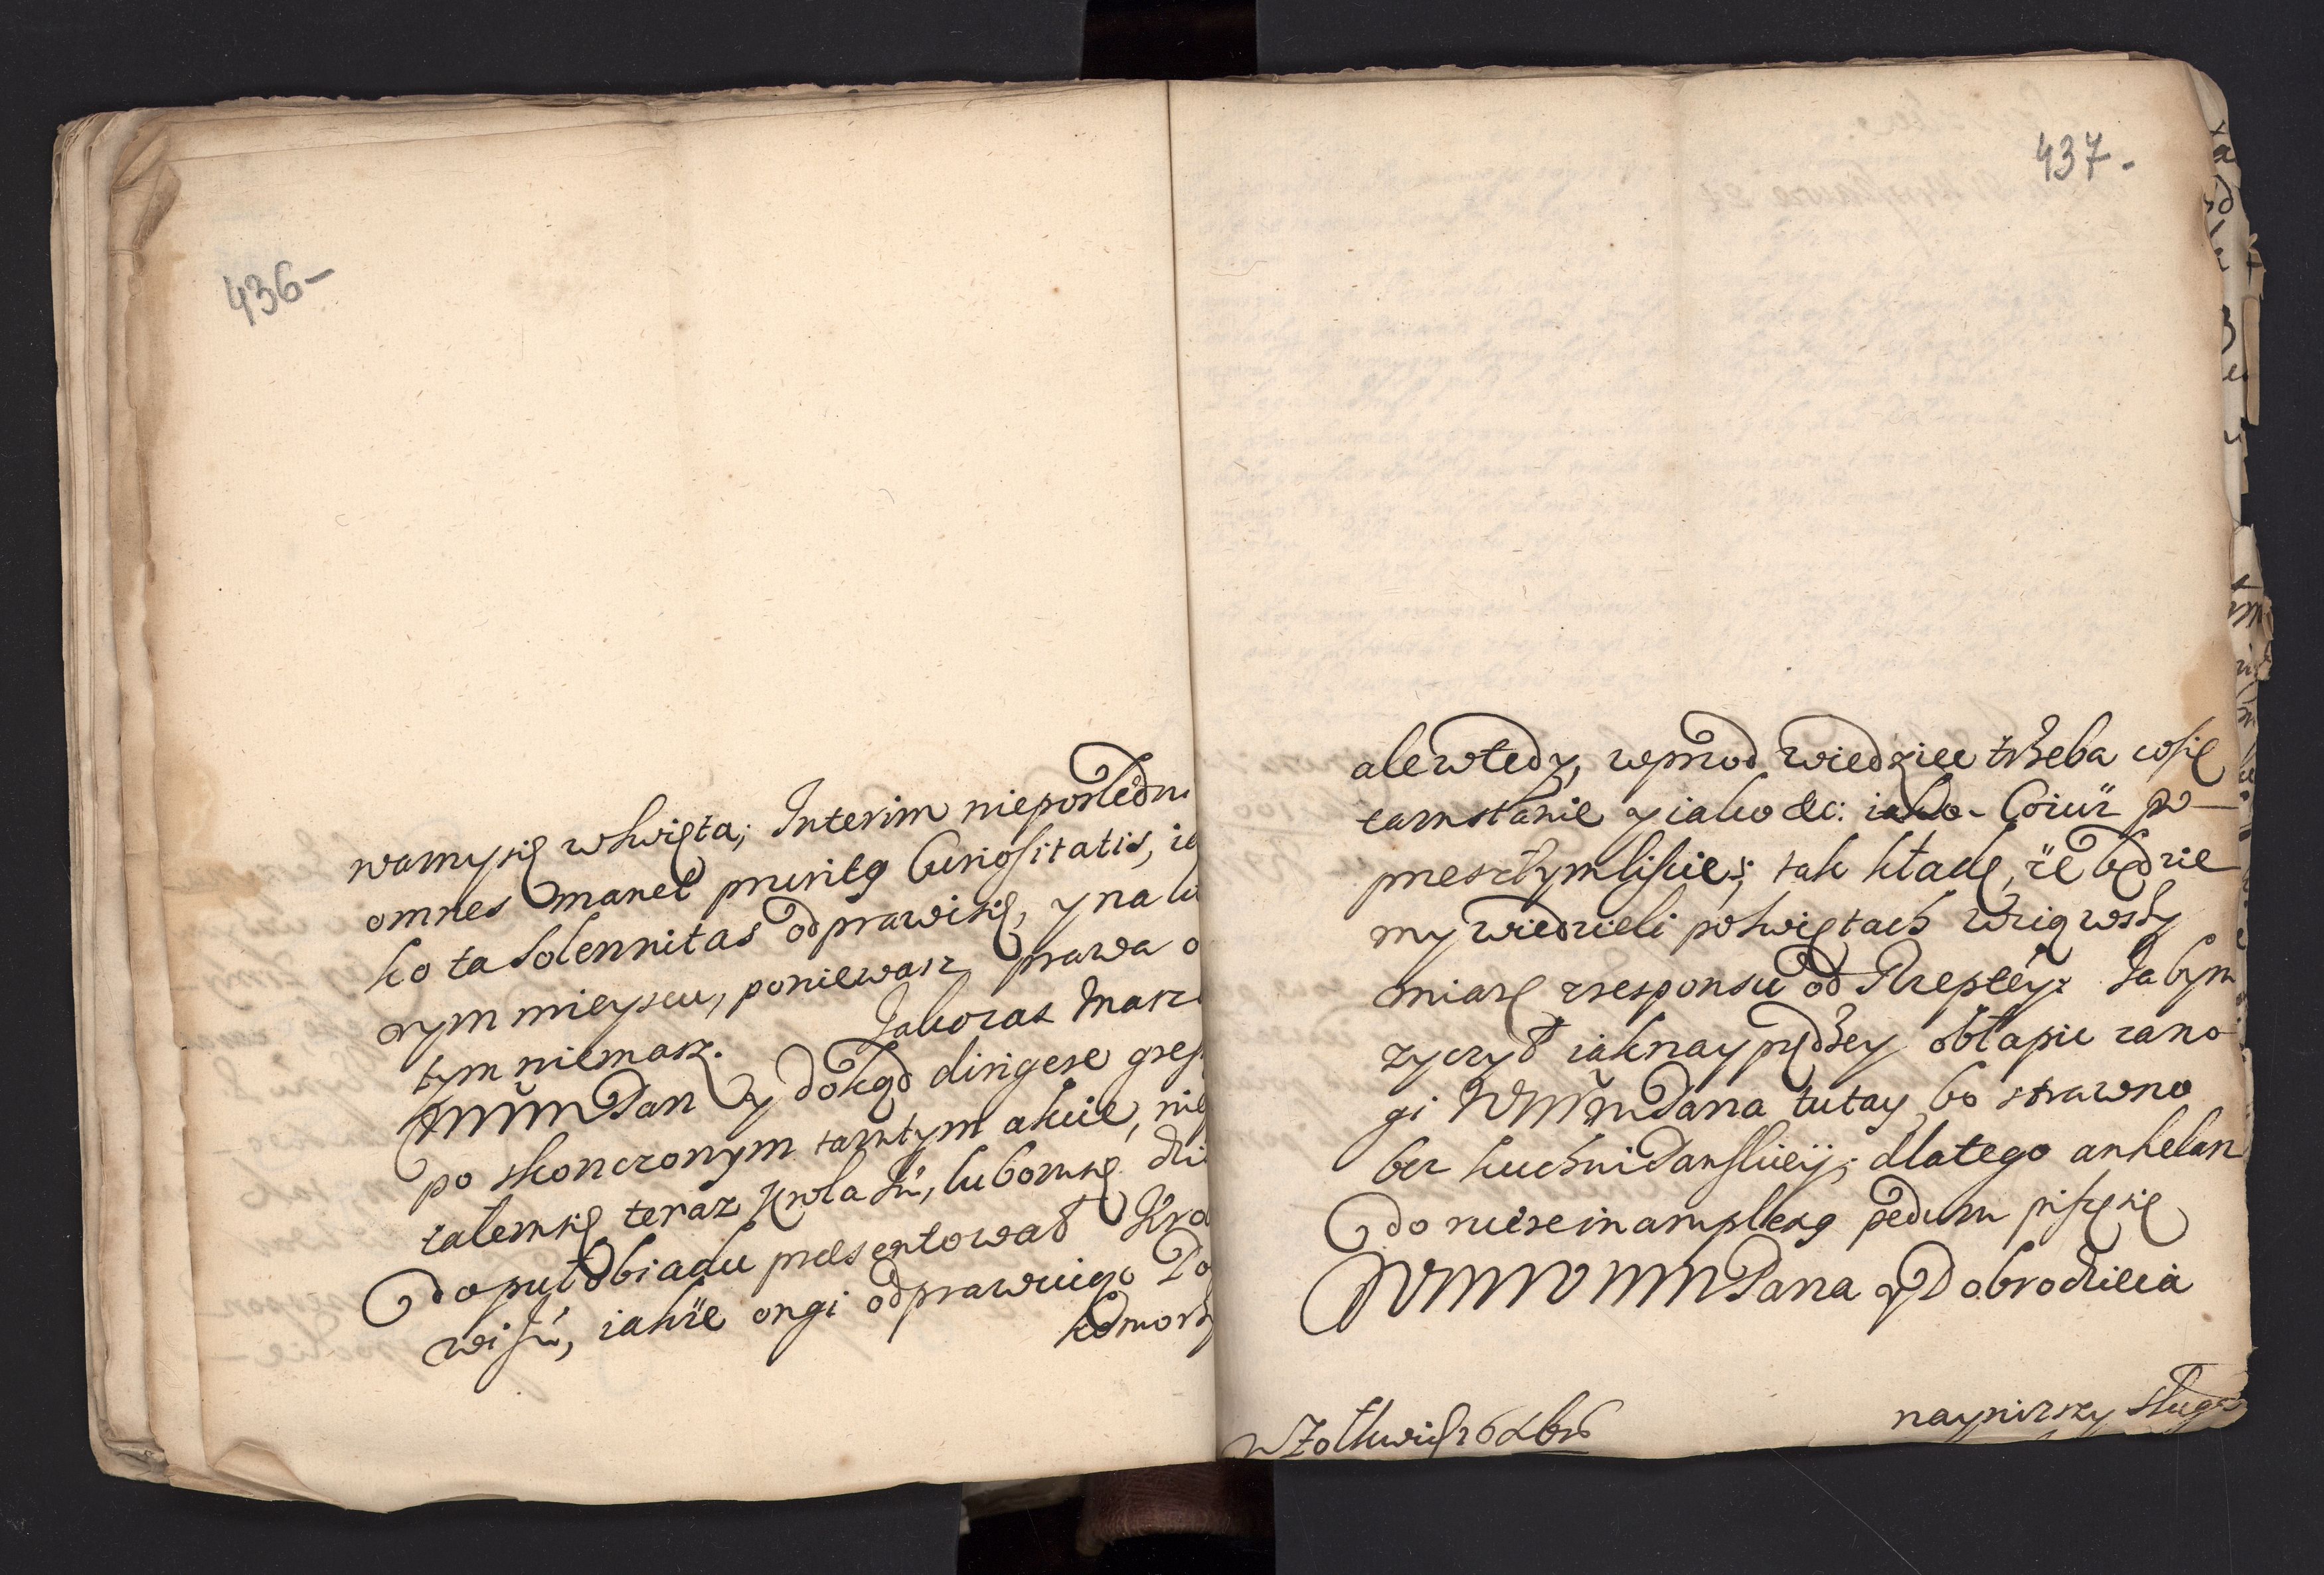 436-
wamysię wswięta; Interim nieposlednı
omnes manet pruritq Curiositatis, ia
ko ta Solennitas odprawisię, y na
rym mieyscu, poniewasz prawa o
tym niemasz. Jakoras
WMMMPan y dokąd dirigere gres
po skonczonym tamtym akcie, nie
talemsię teraz Krola Jú, lubomsię
do puł Obiadu praesentował Kro
wi Jú, iakże ongi odprawuiąc Po
komork
437.
alewtedy, wprzod wiedziec trzeba cosię
tamstanie y iako &c: iako. Coiuż w
przeszłymliscie; tak kładę, że będzie
my wiedzieli poswiętach wziąwszy
miarę zresponsu od Rzeptey: Jabym
zyczył iaknayprędzey obłapic zano
gi WMMMPana tutay, bo strawno
bez kuchni Panskiey; dlatego anhelan
do ruere in amplexq pedum piszę się
WMMMMPana y Dobrodzieia
nayniższy sługa
w Zołkwi 26 Xbris